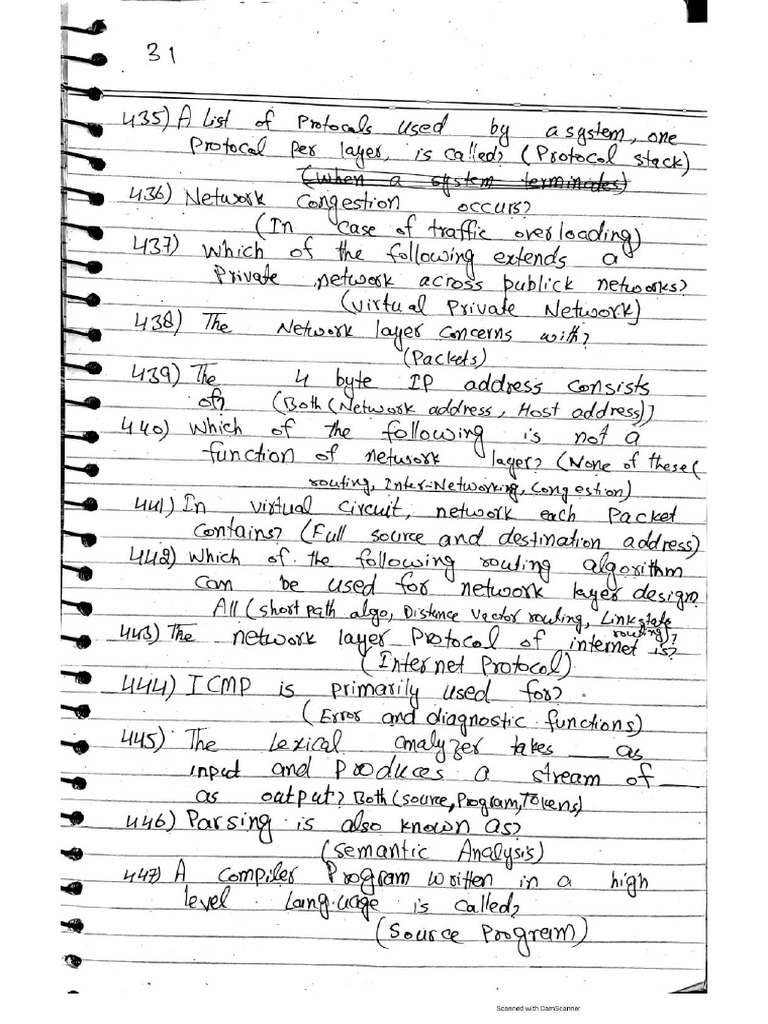 31
435) A List of Protocals used by a system, one
Protocal Per layer, is called? (Protocol stack)
(when a system terminates)
436) Network Congestion occurs?
(In case of traffic overloading)
437) Which of the following extends a
Private network across publick networks?
(Virtual Private Network)
438) The Network layer Concerns with?
(Packets)
439) The 4 byte IP address Consists
of? (Both (Network address, Host address))
440) Which of the following is not a
function of network layer? (None of these(
routing, Inter-Networking, Congestion)
441) In virtual circuit, network each Packet
Contains? (Full source and destination address)
442) Which of the following routing algorithm
can be used for network layer design
All (short path algo, Distance Vector routing, Link state
routing)?
443) The network layer Protocol of internet is?
(Internet Protocol)
444) ICMP is primarily used for?
(Error and diagnostic functions)
445) The Lexical analyzer takes ___ as
input and Produces a stream of ___
as output? Both (source, Program, Tokens)
446) Parsing is also known as?
(Semantic Analysis)
447) A Compiler Program written in a high
level Language is Called?
(Source Program)
Scanned with CamScanner